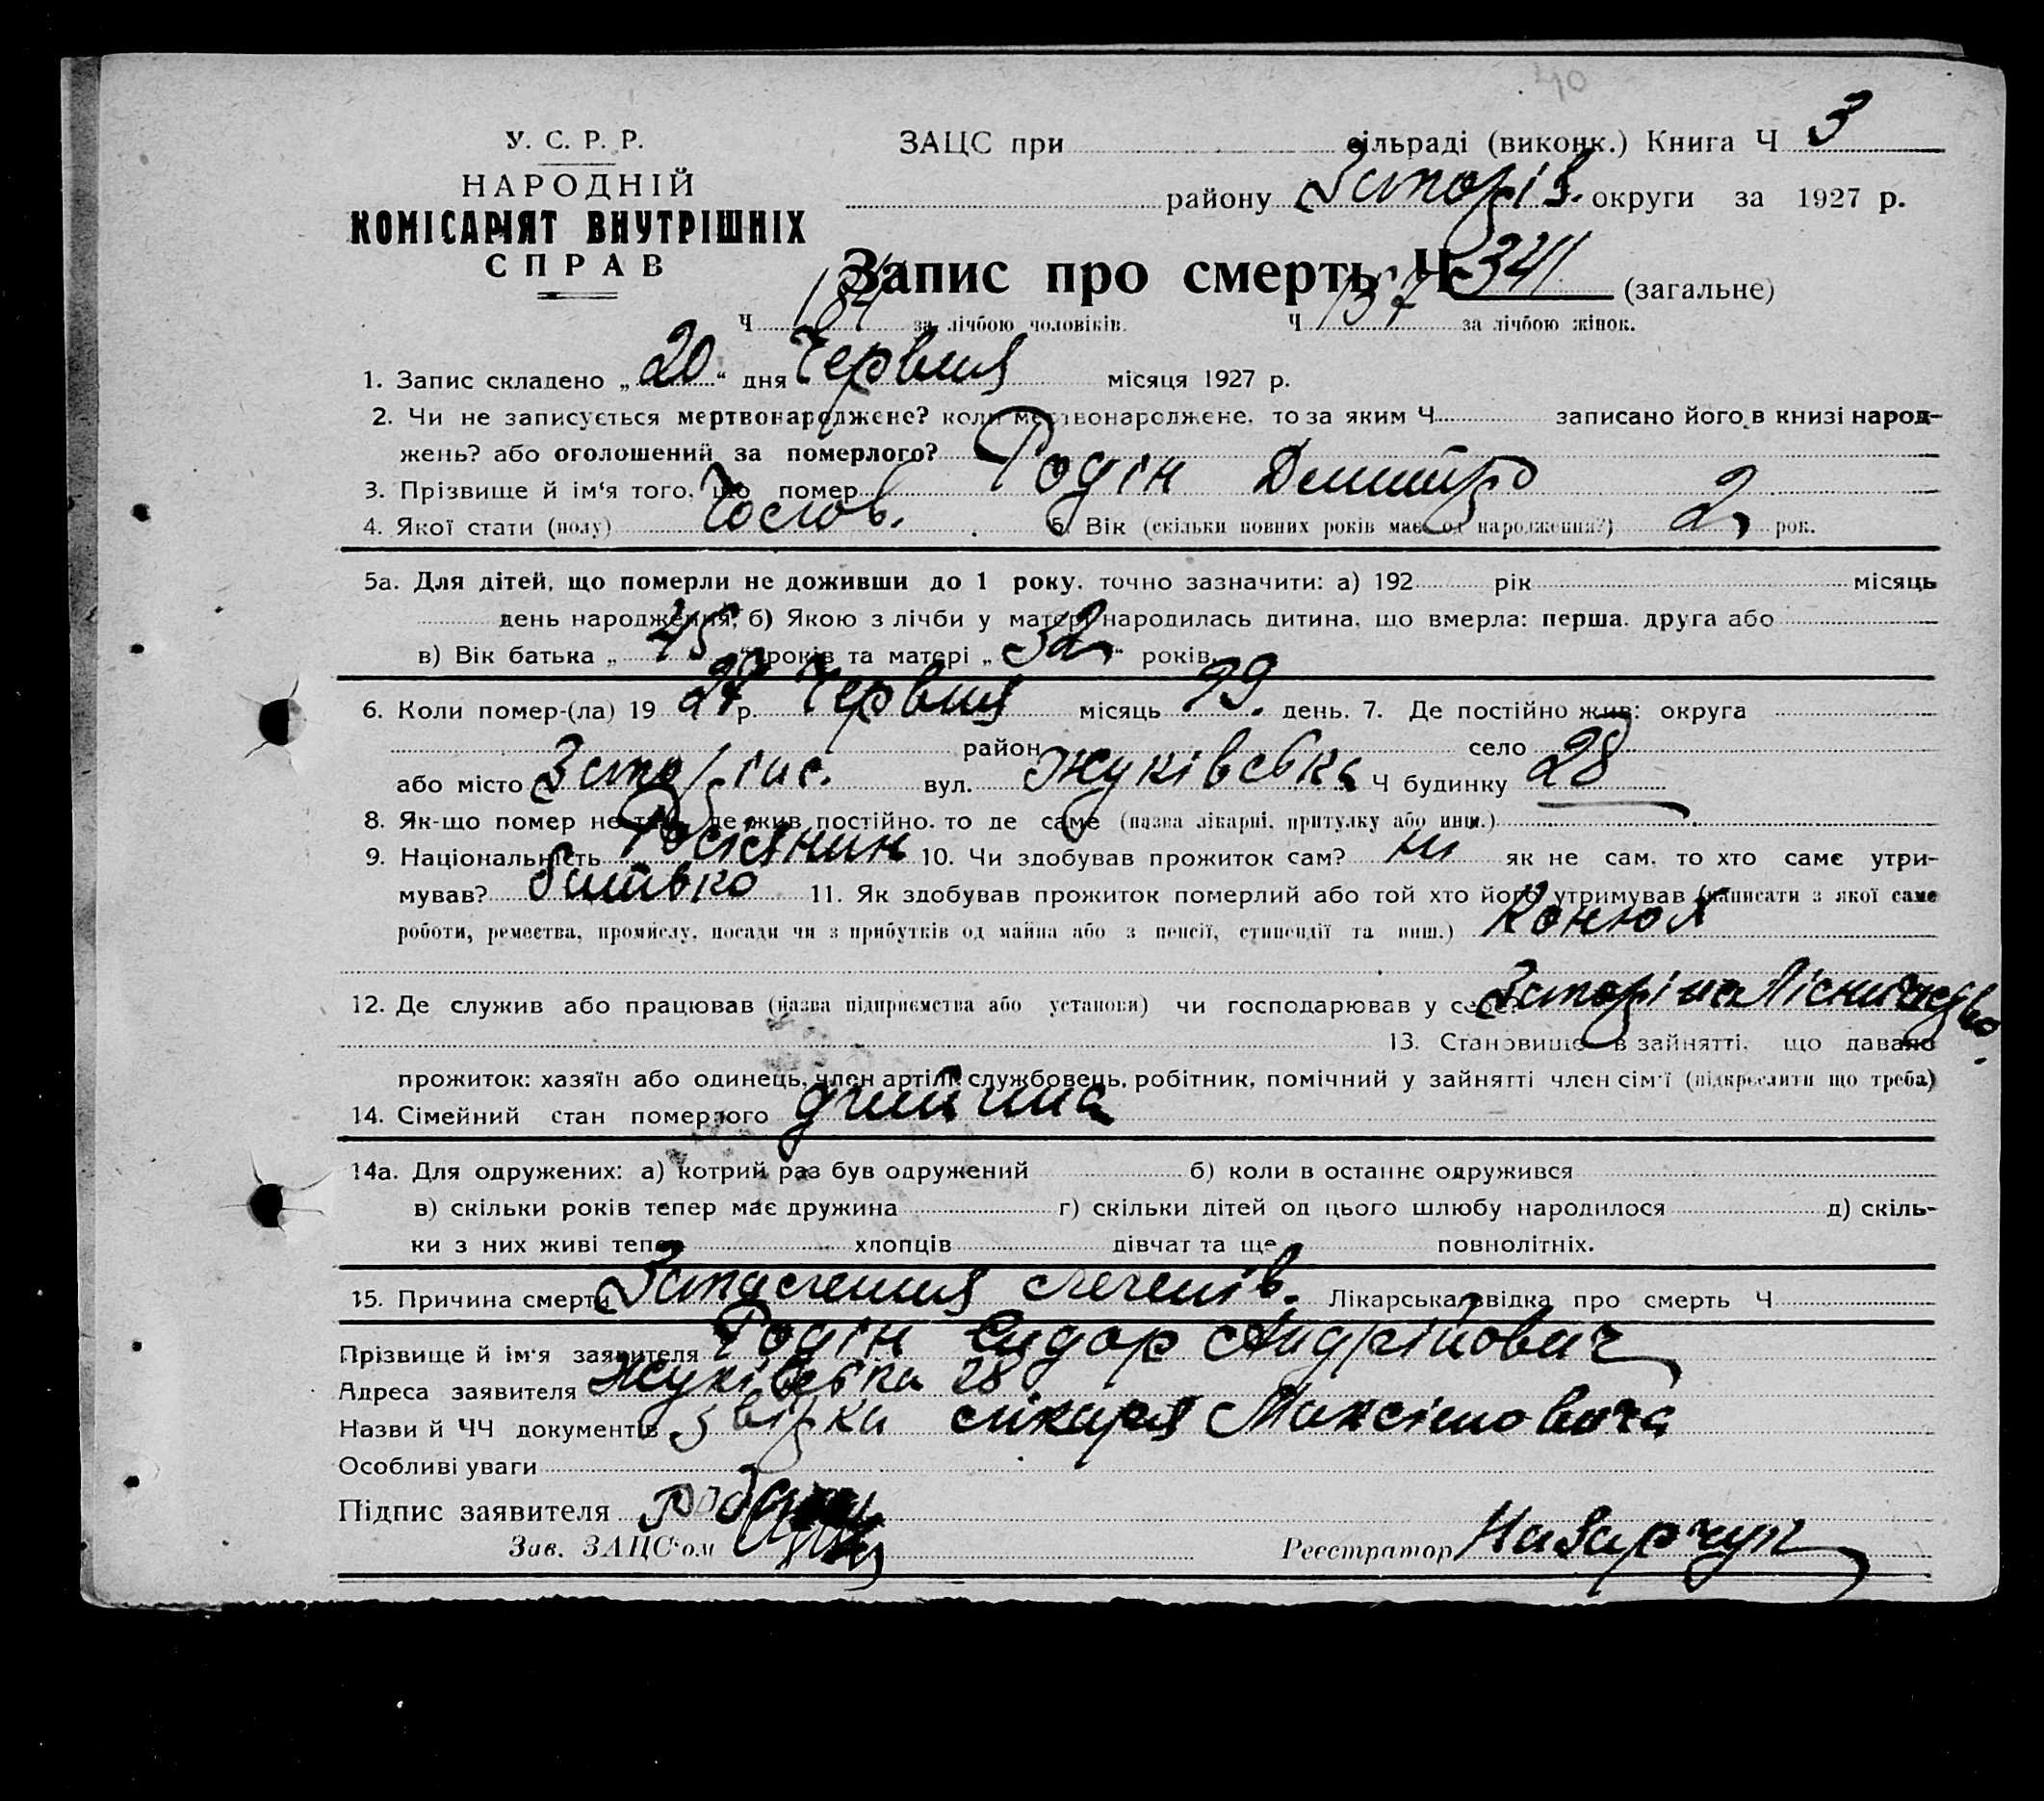 40
У. С. Р. Р.
НАРОДНІЙ
КОМІСАРІЯТ ВНУТРІШНІХ
СПРАВ
ЗАЦС при сільраді (виконк.) Книга Ч 3
району округи за 1927 р.
Запис про смерть Ч 341 (загальне)
Ч 184 за лічбою чоловіків. Ч 157 за лічбою жінок.
1. Запис складено „20“ дня Червня місяця 1927 р.
2. Чи не записується мертвонароджене? коли мертвонароджене, то за яким Ч записано його в книзі народ-
жень? або оголошений за померлого?
3. Прізвище й ім‘я того, що помер Родін Дмитро
4. Якої статі (полу) Чолов. 5. Вік (скільки повних років має од народження?) 2 рок.
5а. Для дітей, що померли не доживши до 1 року, точно зазначити: а) 192 рік місяць
день народження; б) Якою з лічби у матері народилась дитина, що вмерла: перша, друга або
в) Вік батька „45“ років та матері „32“ років
6. Коли помер-(ла) 1927 р. Червня місяць 19. день. 7. Де постійно жив: округа
район село
або місто вул. Жуківська Ч будинку 28
8. Як-що помер не там, де жив постійно, то де саме (назва лікарні, притулку або инш.)
9. Національність Росіянин 10. Чи здобував прожиток сам? ні як не сам, то хто саме утри-
мував? батько 11. Як здобував прожиток померлий або той хто його утримував (написати з якої саме
роботи, ремества, промислу, посади чи з прибутків од майна або з пенсії, стипендії та инш.) Конюх
12. Де служив або працював (назва підприємства або установи) чи господарював у себе? Лісництво.
13. Становище в зайнятті, що давало
прожиток: хазяїн або одинець, член артілі, службовець, робітник, помічний у зайнятті член сім‘ї (підкреслити що треба)
14. Сімейний стан померлого дитина
14а. Для одружених: а) котрий раз був одружений б) коли в останнє одружився
в) скільки років тепер має дружина г) скільки дітей од цього шлюбу народилося д) скіль-
ки з них живі тепер хлопців дівчат та ще повнолітніх.
15. Причина смерти Запалення легенів. Лікарська звідка про смерть Ч
Прізвище й ім‘я заявителя Родін Сидор Андрійович
Адреса заявителя Жуківська 28
Назви й ЧЧ документів звідка лікаря Максімовича
Особливі уваги
Підпис заявителя
Зав. ЗАЦС‘ом Реєстратор Назарчук